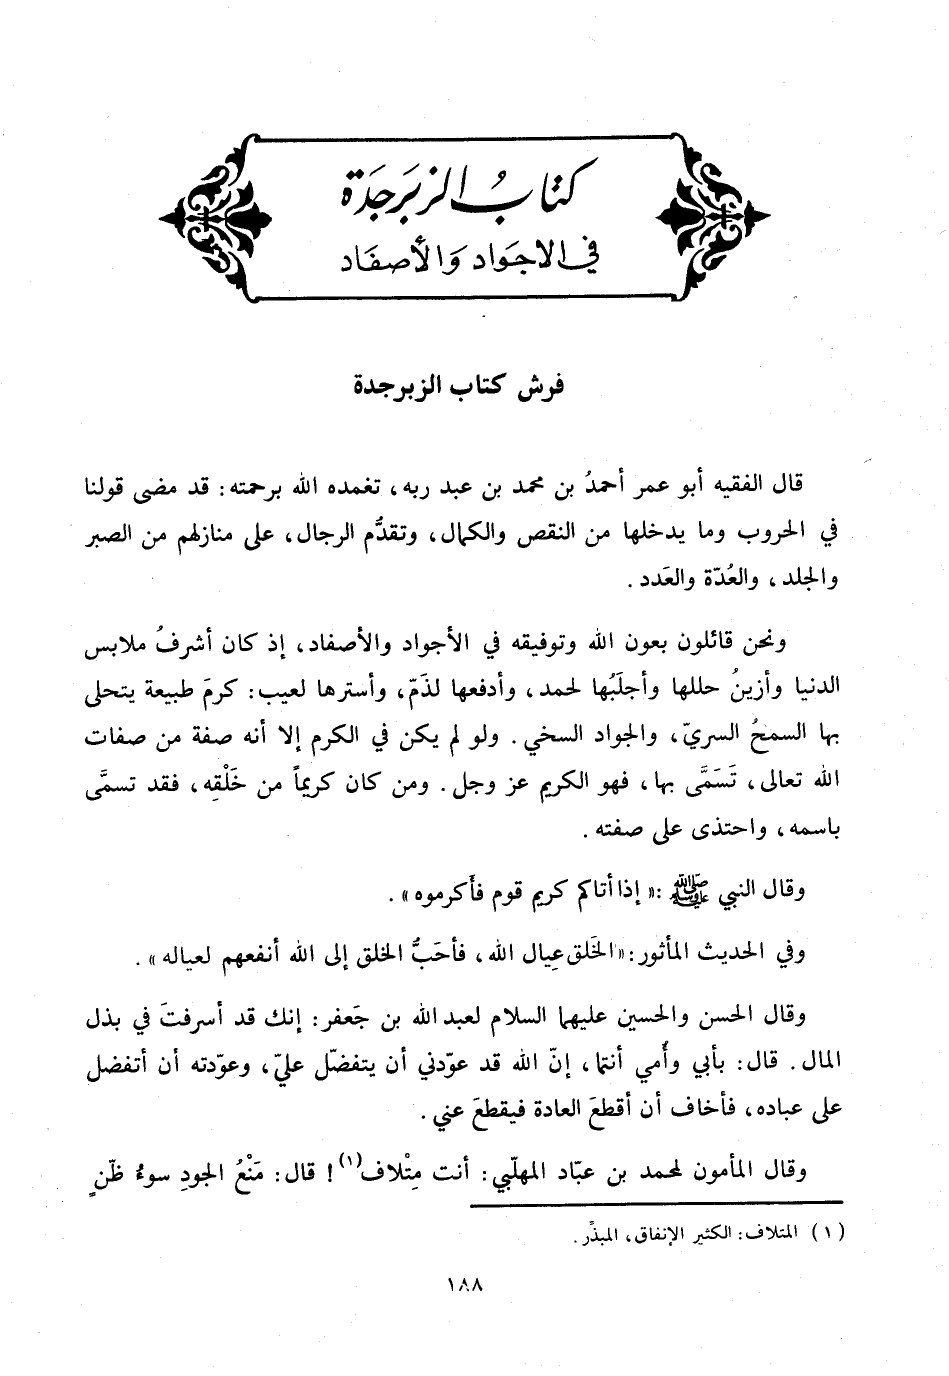 كتاب الزبرجدة
في الاجواد والأصفاد
فرش كتاب الزبرجدة
قال الفقيه أبو عمر أحمدُ بن محمد بن عبد ربه، تغمده الله برحمته: قد مضى قولنا
في الحروب وما يدخلها من النقص والكمال، وتقدُّم الرجال، على منازلهم من الصبر
والجلد، والعُدّة والعَدد.
ونحن قائلون بعون الله وتوفيقه في الأجواد والأصفاد، إذ كان أشرفُ ملابس
الدنيا وأزينُ حللها وأجلَبُها لحمد، وأدفعها لذَمّ، وأسترها لعيب: كرمَ طبيعة يتحلى
بها السمحُ السريّ، والجواد السخي. ولو لم يكن في الكرم إلا أنه صفة من صفات
الله تعالى، تَسَمَّى بها، فهو الكريم عز وجل. ومن كان كريماً من خَلْقِه، فقد تسمَّى
باسمه، واحتذى على صفته.
وقال النبي ﷺ: « إذا أتاكم كريم قوم فأكرموه ».
وفي الحديث المأثور: « الخَلق عِيال الله، فأحَبُّ الخلق إلى الله أنفعهم لعياله ».
وقال الحسن والحسين عليهما السلام لعبد الله بن جَعفر: إنك قد أسرفتَ في بذل
المال. قال: بأبي وأُمي أنتما، إنّ الله قد عوّدني أن يتفضّل عليّ، وعوّدته أن أتفضل
على عباده، فأخاف أن أقطعَ العادة فيقطعَ عني.
وقال المأمون لمحمد بن عبّاد المهلّبي: أنت مِتْلاف(١)! قال: مَنْعُ الجودِ سوءُ ظّنٍ
(١) المتلاف: الكثير الإنفاق، المبذِّر.
١٨٨